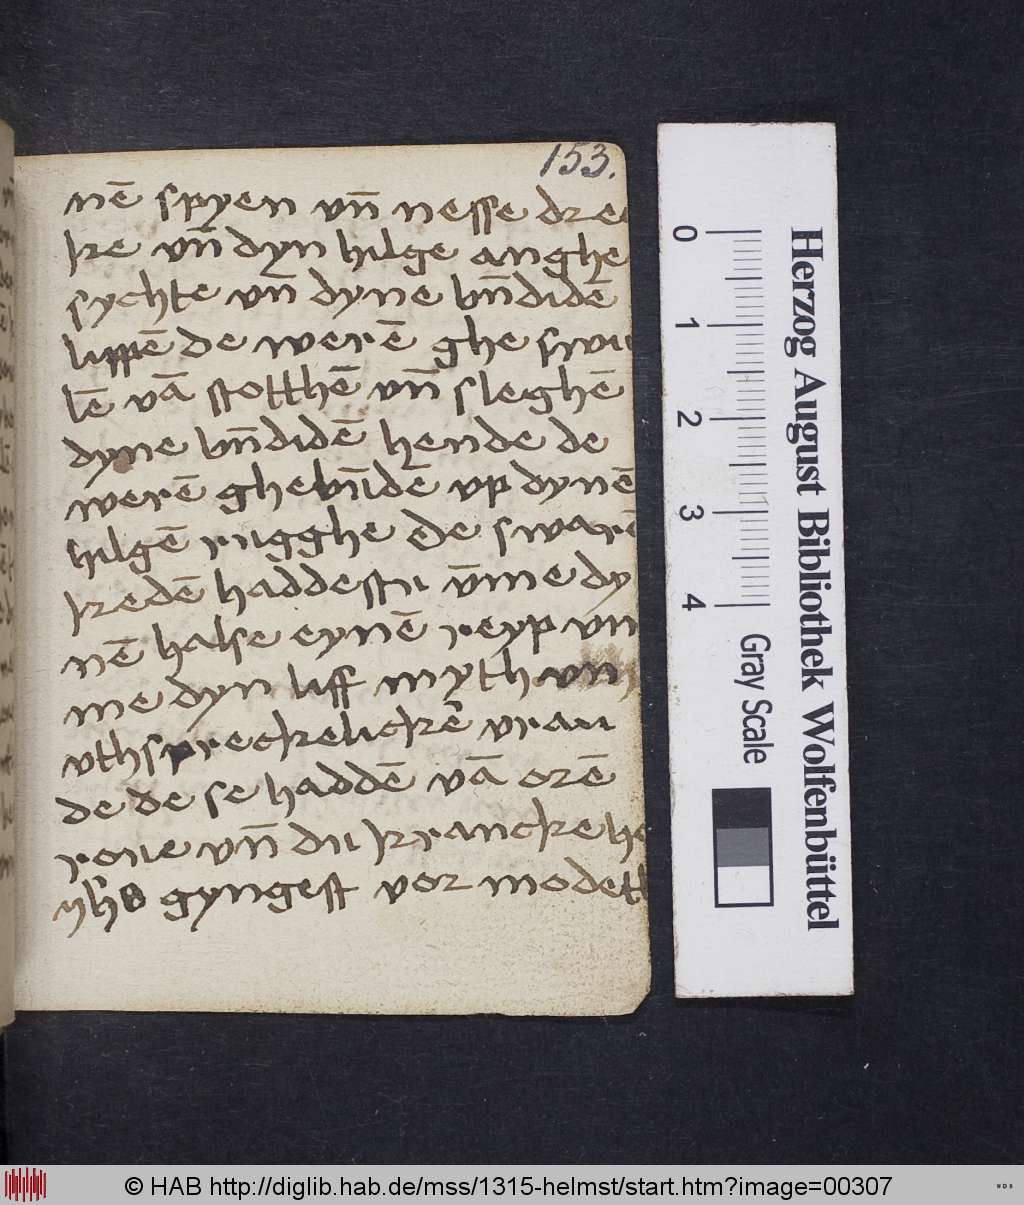 153.
nē spyen vn̄ nesse dree
kre vn̄ dyn hilge anghe
sychte vn̄ dyne bn̄didē
lippē de werē ghe swu
lē vā stotthē vn̄ sleghē
dyne bn̄didē hende de
werē ghebn̄idē vp dynē
hilgē rugghe De swarē
kredē haddestu v̄me dy
nē halse eynē reyp vm
me dyn liff myth vn
vthsprecklickē vrau
de de se haddē vā orē
roue vn̄ du krancke he
yh̄s gyngest vor modeth
Herzog August Bibliothek Wolfenbüttel
0 1 2 3 4
Gray Scale
© HAB http://diglib.hab.de/mss/1315-helmst/start.htm?image=00307